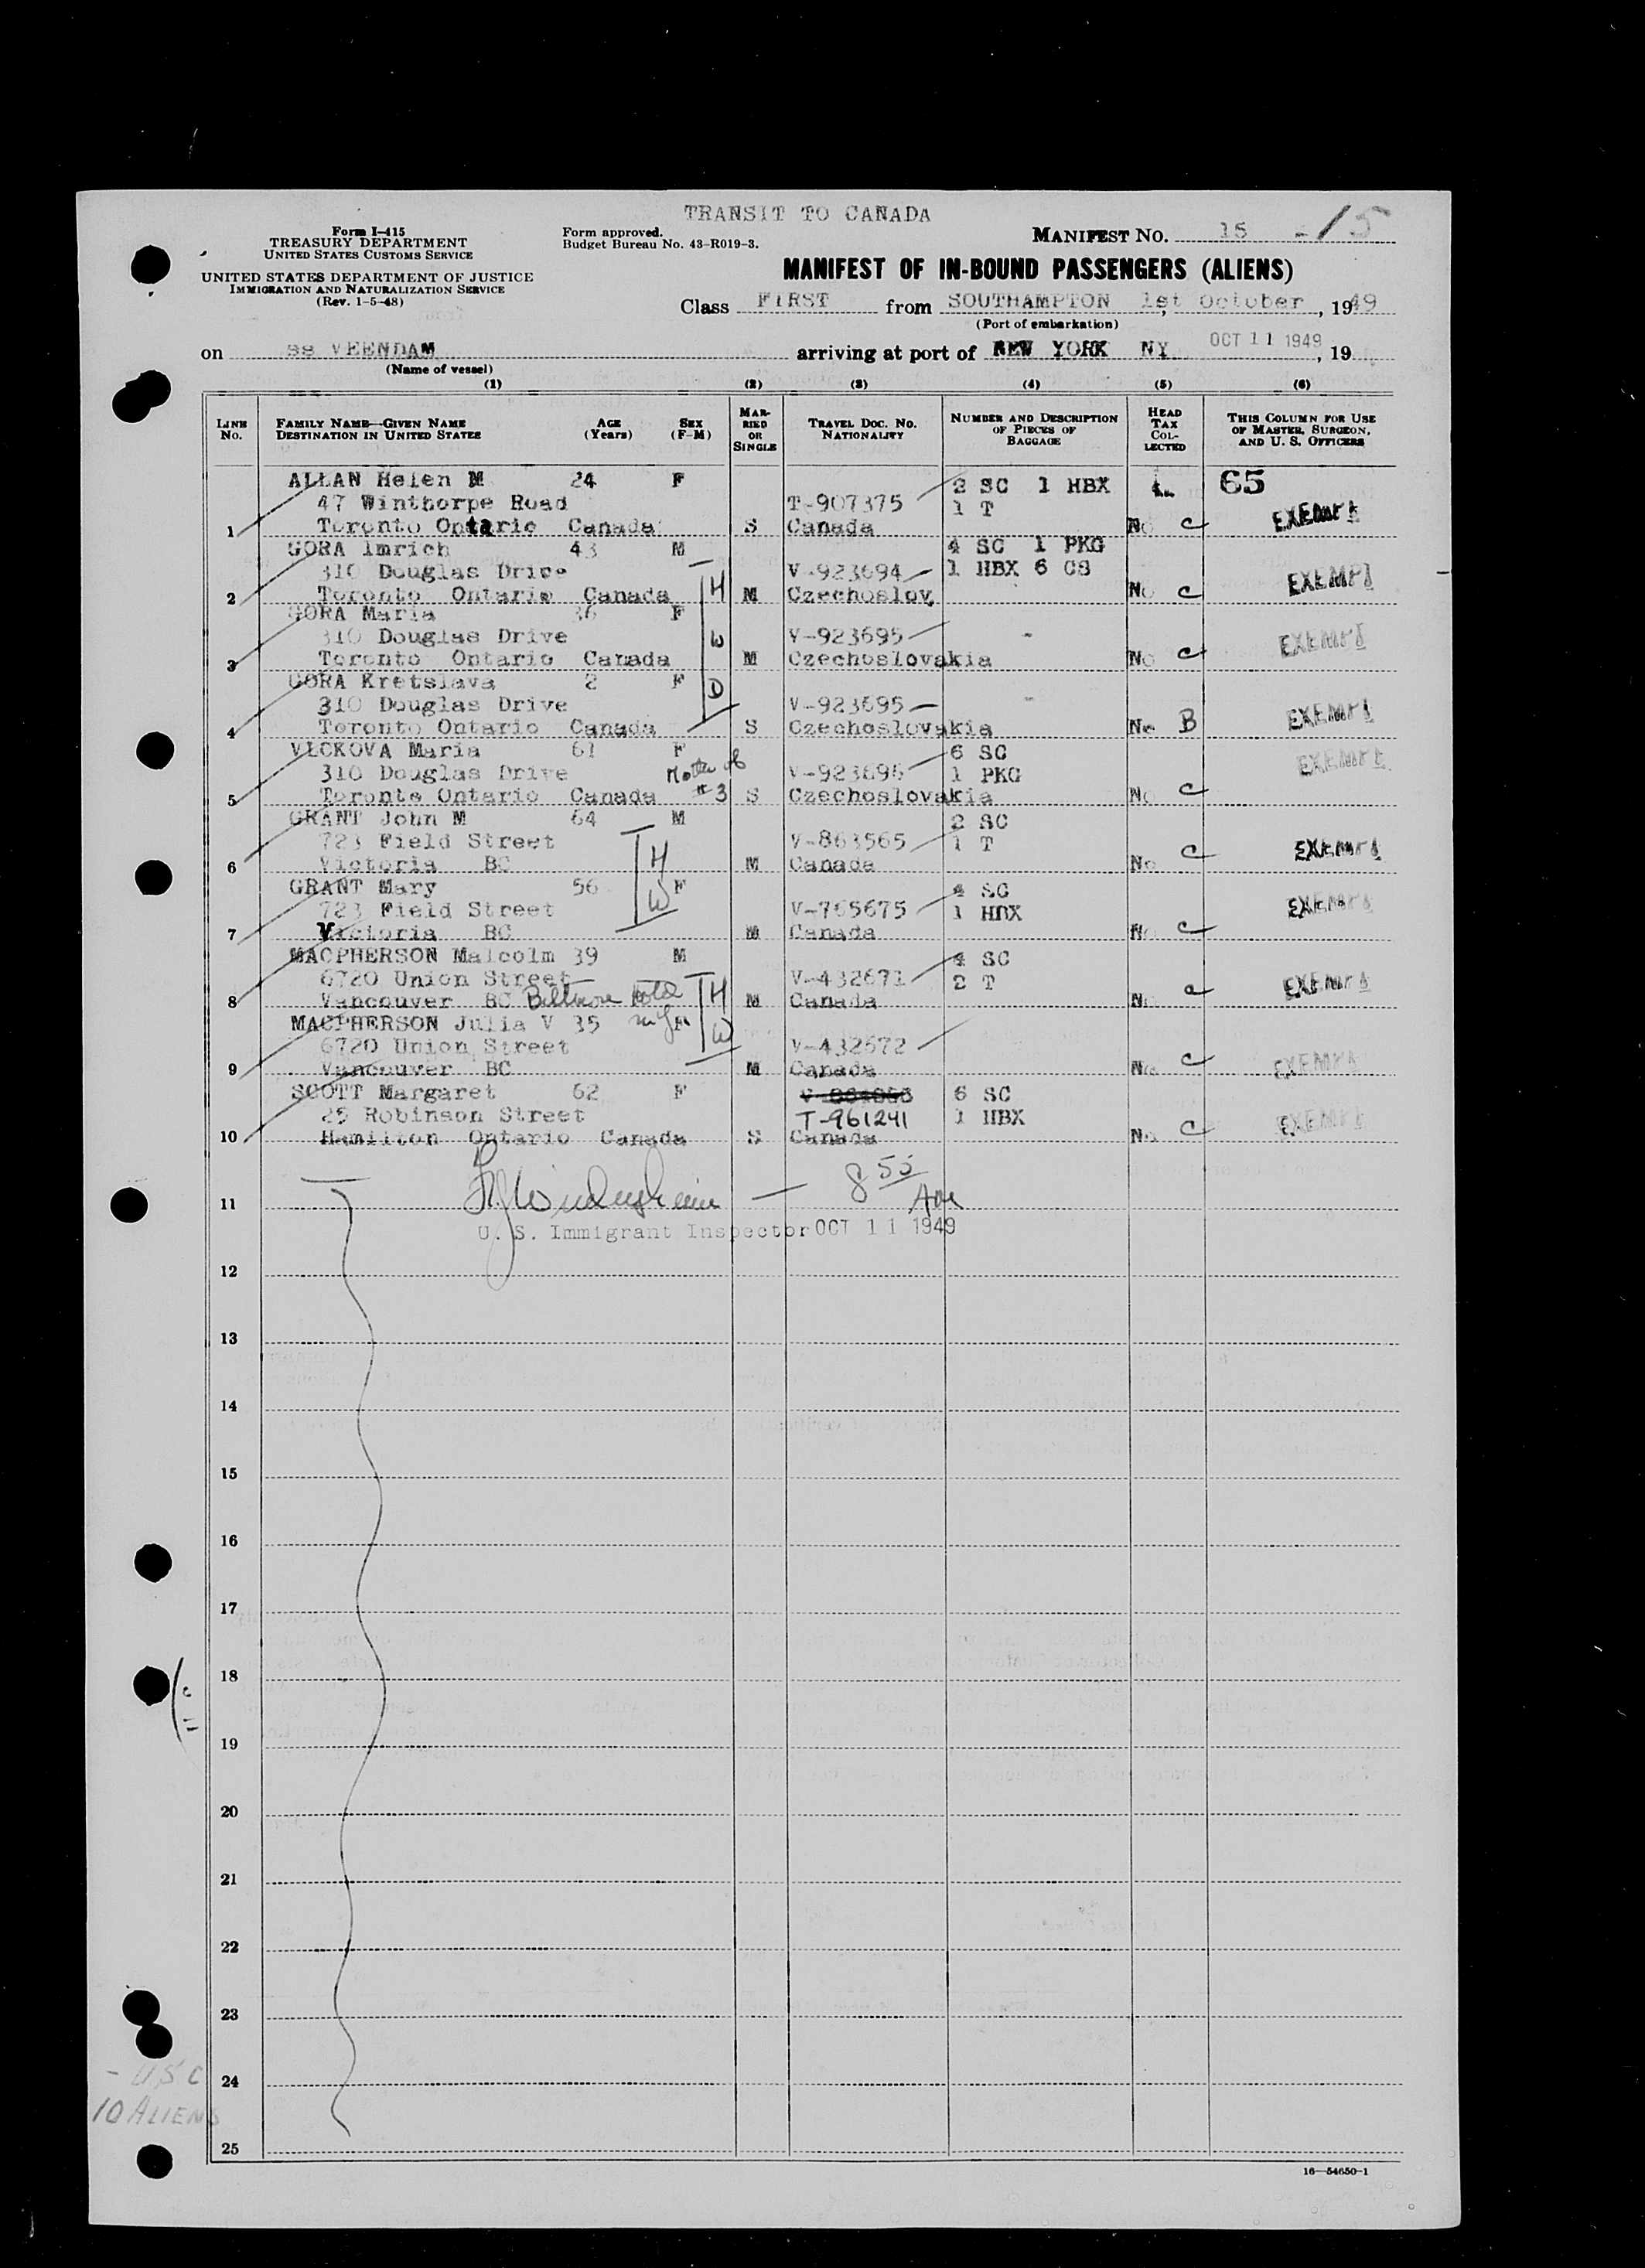 TRANSIT TO CANADA
Form I-415
TREASURY DEPARTMENT
UNITED STATES CUSTOMS SERVICE
UNITED STATES DEPARTMENT OF JUSTICE
IMMIGRATION AND NATURALIZATION SERVICE
(Rev. 1-5-48)
Form approved.
Budget Bureau No. 43-R019-3.
MANIFEST NO. 15 - 15
MANIFEST OF IN-BOUND PASSENGERS (ALIENS)
Class FIRST from SOUTHAMPTON 1st October, 1949
(Port of embarkation)
on ss VEENDAM arriving at port of NEW YORK NY OCT 11 1949, 19
(Name of vessel)
(1) (2) (3) (4) (5) (6)
LINE NO.
FAMILY NAME—GIVEN NAME
DESTINATION IN UNITED STATES
AGE (Years)
SEX (F-M)
MARRIED OR SINGLE
TRAVEL DOC. NO.
NATIONALITY
NUMBER AND DESCRIPTION OF PIECES OF BAGGAGE
HEAD TAX COLLECTED
THIS COLUMN FOR USE OF MASTER, SURGEON, AND U. S. OFFICERS
ALLAN Helen M 24 F 2 SC 1 HBX 65
47 Winthorpe Road T-907375 1 T
1 Toronto Ontario Canada S Canada No C EXEMPT
GORA Imrich 43 M 4 SC 1 PKG
310 Douglas Drive V-923694 1 HBX 6 CS
2 Toronto Ontario Canada H M Czechoslov. No C EXEMPT
GORA Maria 36 F
310 Douglas Drive W V-923695 -
3 Toronto Ontario Canada M Czechoslovakia No C EXEMPT
GORA Kretslava 2 F D
310 Douglas Drive V-923695 -
4 Toronto Ontario Canada S Czechoslovakia No B EXEMPT
VLCKOVA Maria 61 F 6 SC
310 Douglas Drive Mother of V-923696 1 PKG
5 Toronto Ontario Canada #3 S Czechoslovakia No C EXEMPT
GRANT John M 64 M 2 SC
723 Field Street V-863565 1 T
6 Victoria BC H M Canada No C EXEMPT
GRANT Mary 56 W F 4 SC
723 Field Street V-765675 1 HBX
7 Victoria BC M Canada No C EXEMPT
MACPHERSON Malcolm 39 M 4 SC
6720 Union Street V-432671 2 T
8 Vancouver BC Biltmore Hotel H M Canada No C EXEMPT
MACPHERSON Julia V 35 F W
6720 Union Street V-432672
9 Vancouver BC M Canada No C EXEMPT
SCOTT Margaret 62 F 6 SC
25 Robinson Street T-961241 1 HBX
10 Hamilton Ontario Canada S Canada No C EXEMPT
11 8 55 AM
U. S. Immigrant Inspector OCT 11 1949
12
13
14
15
16
17
18
19
20
21
22
23
- USC
24
10 ALIENS
25
16—54650-1